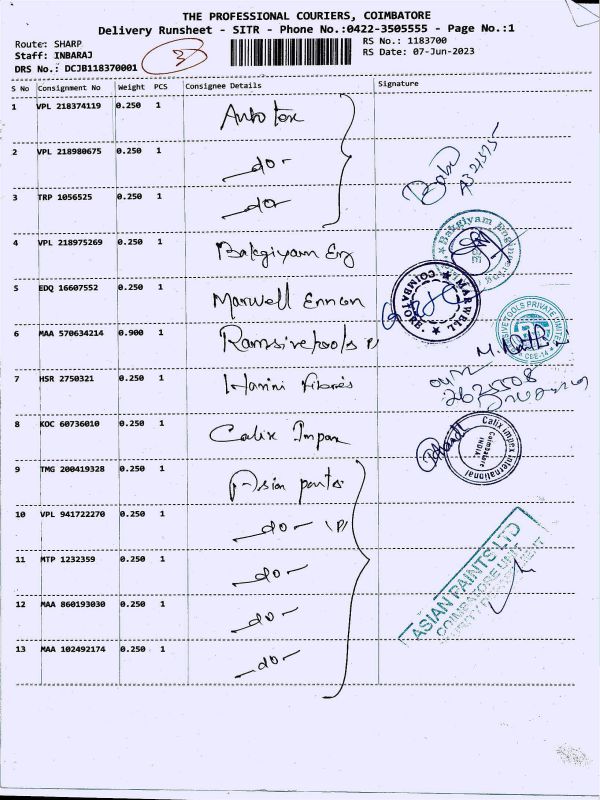 THE PROFESSIONAL COURIERS, COIMBATORE
Delivery Runsheet - SITR - Phone No.:0422-3505555 - Page No.:1
Route: SHARP
Staff: INBARAJ
DRS No.: DCJB118370001
3
RS No.: 1183700
RS Date: 07-Jun-2023
S No Consignment No Weight PCS Consignee Details Signature
1 VPL 218374119 0.250 1 Auto tex
2 VPL 218980675 0.250 1 -do-
3 TRP 1056525 0.250 1 -do-
Babu
4 VPL 218975269 0.250 1 Bakgiyam Eng
Bakgiyam Engineering
5 EDQ 16607552 0.250 1 Marwell
MARWELL COIMBATORE
6 MAA 570634214 0.900 1 Ramsivetools
PRIVATE LIMITED
CBE-14
7 HSR 2750321 0.250 1 Harini Fibres
8 KOC 60736010 0.250 1 Calix Impex
Calix Impex International
Coimbatore
INDIA
9 TMG 200419328 0.250 1 Asian paints
10 VPL 941722270 0.250 1 -do-
11 MTP 1232359 0.250 1 -do-
12 MAA 860193030 0.250 1 -do-
13 MAA 102492174 0.250 1 -do-
ASIAN PAINTS LTD
COIMBATORE UNIT
SECURITY DEPARTMENT